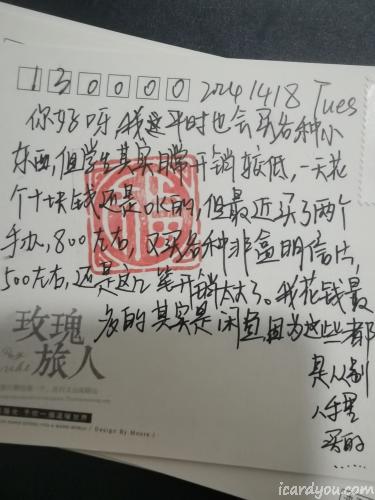 130000 2024 1418 Tues
你好呀,我平时也会买各种小
东西,但学生其实日常开销较低,一天花
个十块钱还是ok的,但最近买了两个
手办,800左右,又买各种非盒明信片,
500左右,还是这笔开销太大了。我花钱最
多的其实是闲鱼,因为这些都
是从别
人手里
买的
......
玫瑰
旅人
/ Design By Moore /
icardyou.com